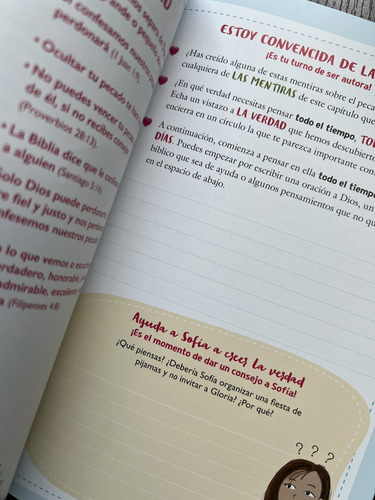 confesamos nuestros
perdonará (1 Juan 1:9)
• Ocultar tu pecado te
• No puedes vencer tu
de él, si no recibes
(Proverbios 28:13).
• La Biblia dice que le
a alguien (Santiago 5:16)
Solo Dios puede perdonar
fiel y justo y nos
nuestros
lo que vemos o
verdadero, honorable,
admirable,
(Filipenses 4:8)
ESTOY CONVENCIDA DE LA
¡Es tu turno de ser autora!
¿Has creído alguna de estas mentiras sobre el
cualquiera de LAS MENTIRAS de este capítulo que
¿En qué verdad necesitas pensar todo el tiempo,
Echa un vistazo a LA VERDAD que hemos
encierra en un círculo la que te parezca importante
A continuación, comienza a pensar en ella todo el
DÍAS. Puedes empezar por escribir una oración a Dios, un
bíblico que sea de ayuda o algunos pensamientos que no
en el espacio de abajo.
Ayuda a Sofía a creer la verdad
¡Es el momento de dar un consejo a Sofía!
¿Qué piensas? ¿Debería Sofía organizar una fiesta de
pijamas y no invitar a Gloria? ¿Por qué?
? ? ?